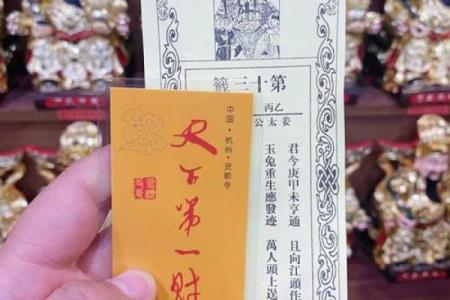 第十三籤
乙丙
姜太公
君今庚甲未亨通 且向江頭作
玉兔重生應發迹 萬人頭上逞
中国·杭州·灵顺寺
天下第一财